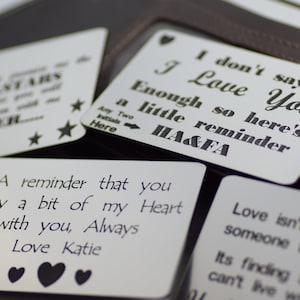 me the
STARS
you will
with me
I don't say
I Love You
Enough so here's
a little reminder
Any Two
Initials
Here
HA&FA
A reminder that you
y a bit of my Heart
with you, Always
Love Katie
Love isn'
someone
Its finding
can't live